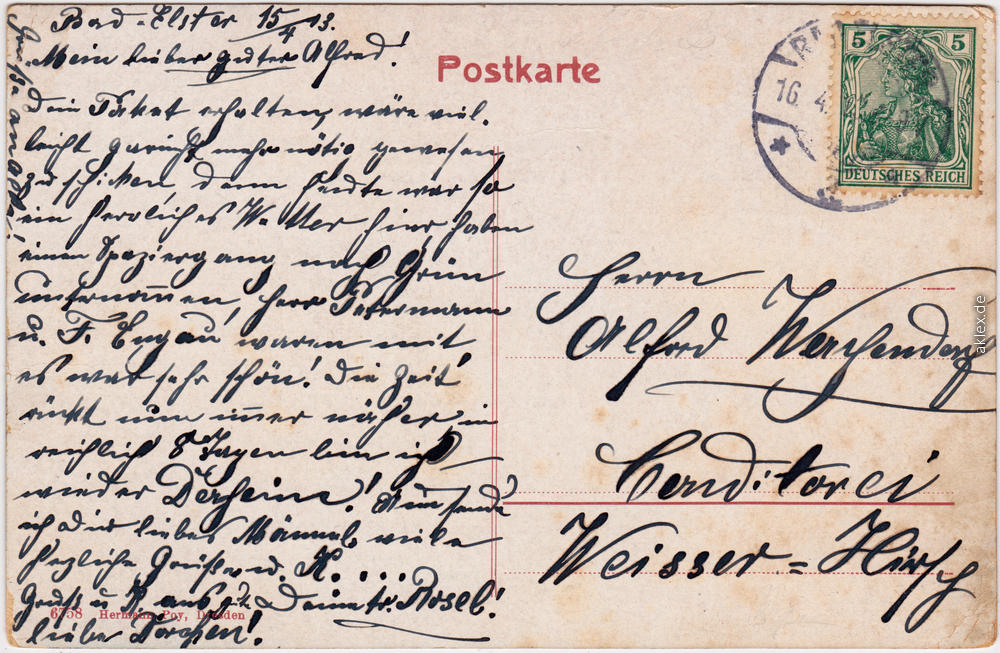 Bad-Elster 15/4 13.
Mein lieber guter Alfred!
Dein Paket erhalten, wäre viel-
leicht garnicht mehr nötig gewesen
zu schicken, denn heute war so
ein herrliches Wetter hier, haben
einen Spaziergang nach Grün
unternommen, Herr Petermann
u. F. waren mit
es war sehr schön! Die Zeit
rückt nun immer näher, in
reichlich 8 Tagen bin ich
wieder Daheim! Nun sende
ich Dir liebes Männel viele
herzliche Grüße u. K....
Gruß u. K. an Deine tr. Rosel!
liebe Dorchen!
Grüße an alle!
Postkarte
16. 4.
5 5
DEUTSCHES REICH
Herrn
Alfred
Conditorei
Weisser-Hirsch
6758 Hermann Poy, Dresden
aklex.de